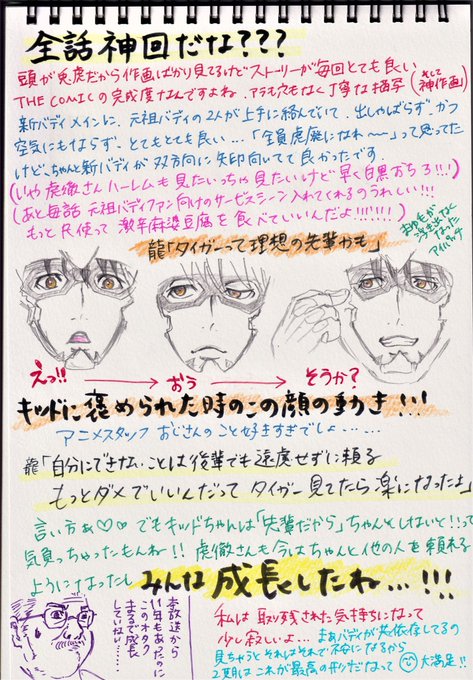 全話神回だな???
頭が兎虎だから作画ばかり見てるけどストーリーが毎回とても良い
THE COMICの完成度なんですよね アラも穴もなく丁寧な描写(そして神作画)
新バディメインに、元祖バディの2人が上手に絡んでいて、出しゃばらず、かつ
空気にもならず、とてもとても良い…「全員虎廃になれ〜〜」って思ってた
けど、ちゃんと新バディが双方向に矢印向いてて良かったです。
(いや虎徹さんハーレムも見たいっちゃ見たいけど早く自黒おちろ!!)
(あと毎話 元祖バディファン向けのサービスシーン入れてくれるのうれしい!!!
もっと尺使って 激辛麻婆豆腐を食べていいんだよ!!!!!!!)
まゆ毛が
浮き出なく
なった
アイパッチ
龍「タイガーって理想の先輩かも」
えっ!!
おう
そうか?
キッドに褒められた時のこの顔の動き!!!
アニメスタッフ おじさんのこと好きすぎでしょ……
龍「自分にできないことは後輩でも遠慮せずに頼る
もっとダメでいいんだって タイガー見てたら楽になったよ」
言い方ぁ♡♡ でもキッドちゃんは「先輩だから」ちゃんとしないと!!って
気負っちゃったもんね!! 虎徹さんも今はちゃんと他の人を頼れる
ようになったし みんな成長したね…!!!
本放送から
11年もあったのに
このオタク
まるで成長
していない……
私は取り残された気持ちになって
少し寂しいよ… まぁバディが共依存してるの
見ちゃうとそれはそれで不安になるから
2期はこれが最高の形だなって 大満足!!